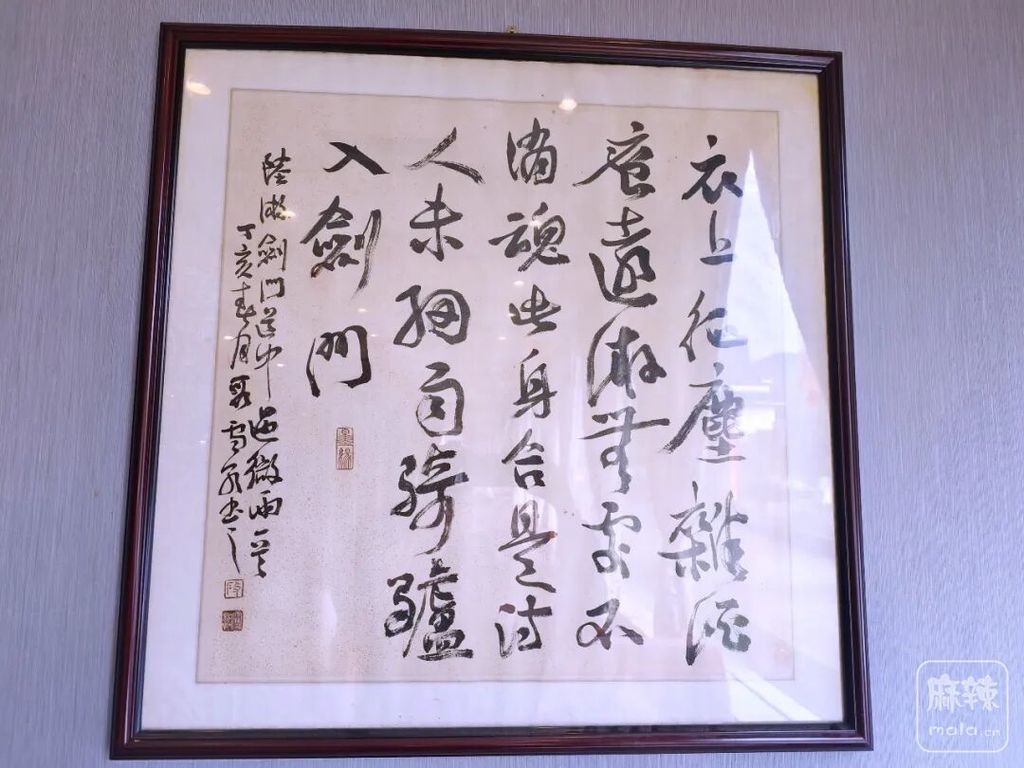 衣上征塵雜酒
痕遠游無處不
消魂此身合是詩
人未細雨騎驢
入劍門
陸游劍門道中遇微雨一首
丁亥春月書之
麻辣
mala.cn